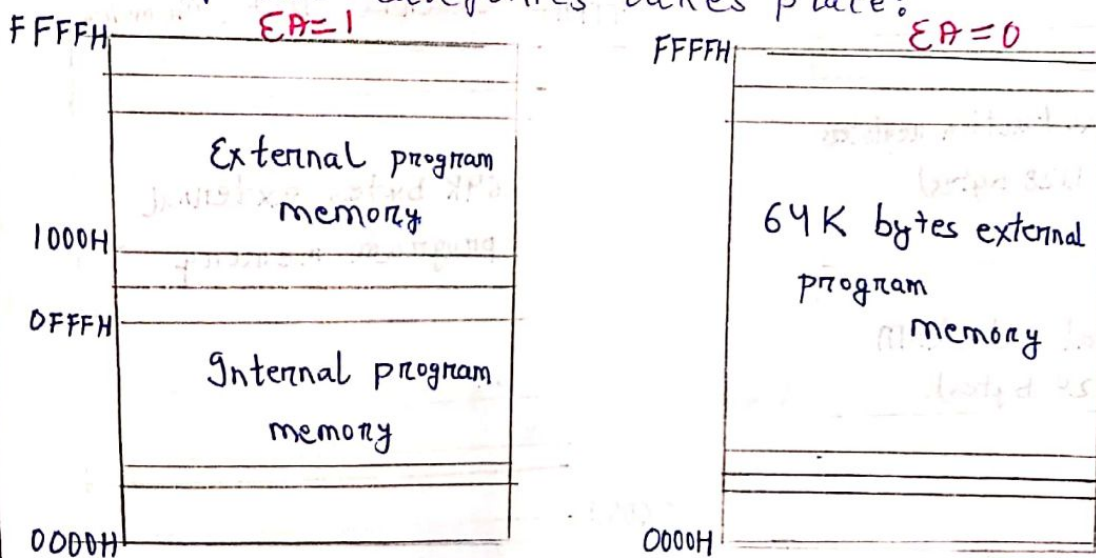 takes place:
EA=1
FFFFH
External program
memory
1000H
0FFFH
Internal program
memory
0000H
EA=0
FFFFH
64K bytes external
program
memory
0000H